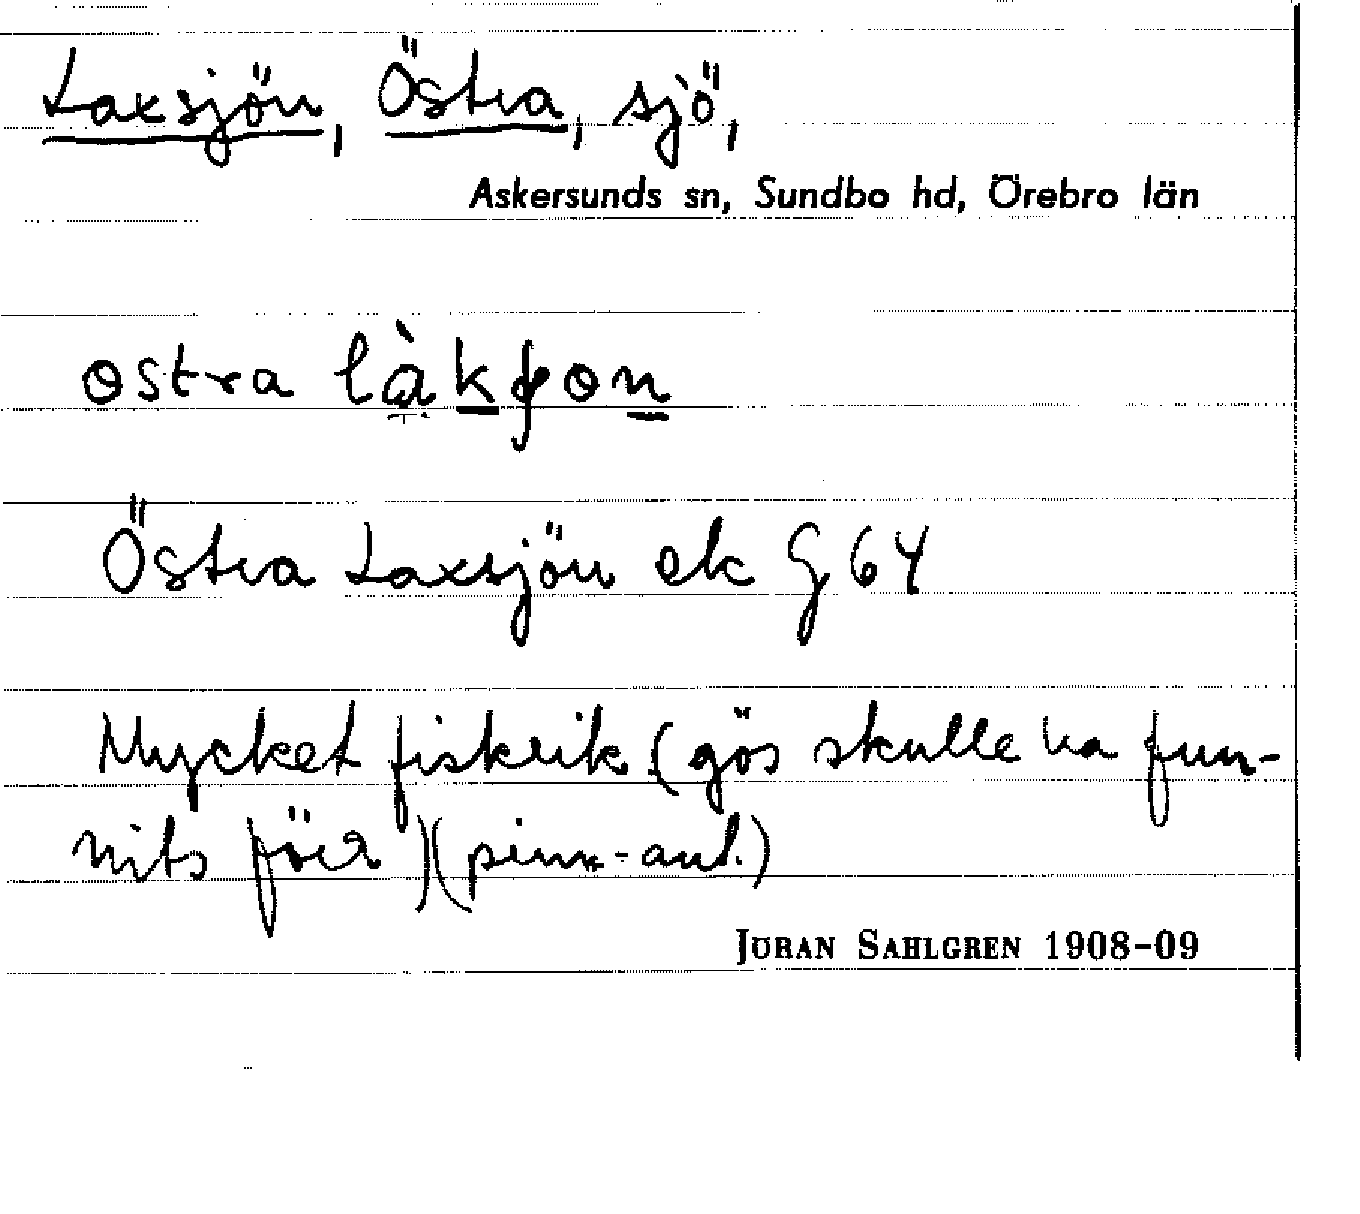 Laxsjön, Östra, sjö,
Askersunds sn, Sundbo hd, Örebro län
ɵstra làkʃɵn
Östra Laxsjön ek G 64
Mycket fiskrik (gös skulle ha fun-
nits förr) (
JÖRAN SAHLGREN 1908-09